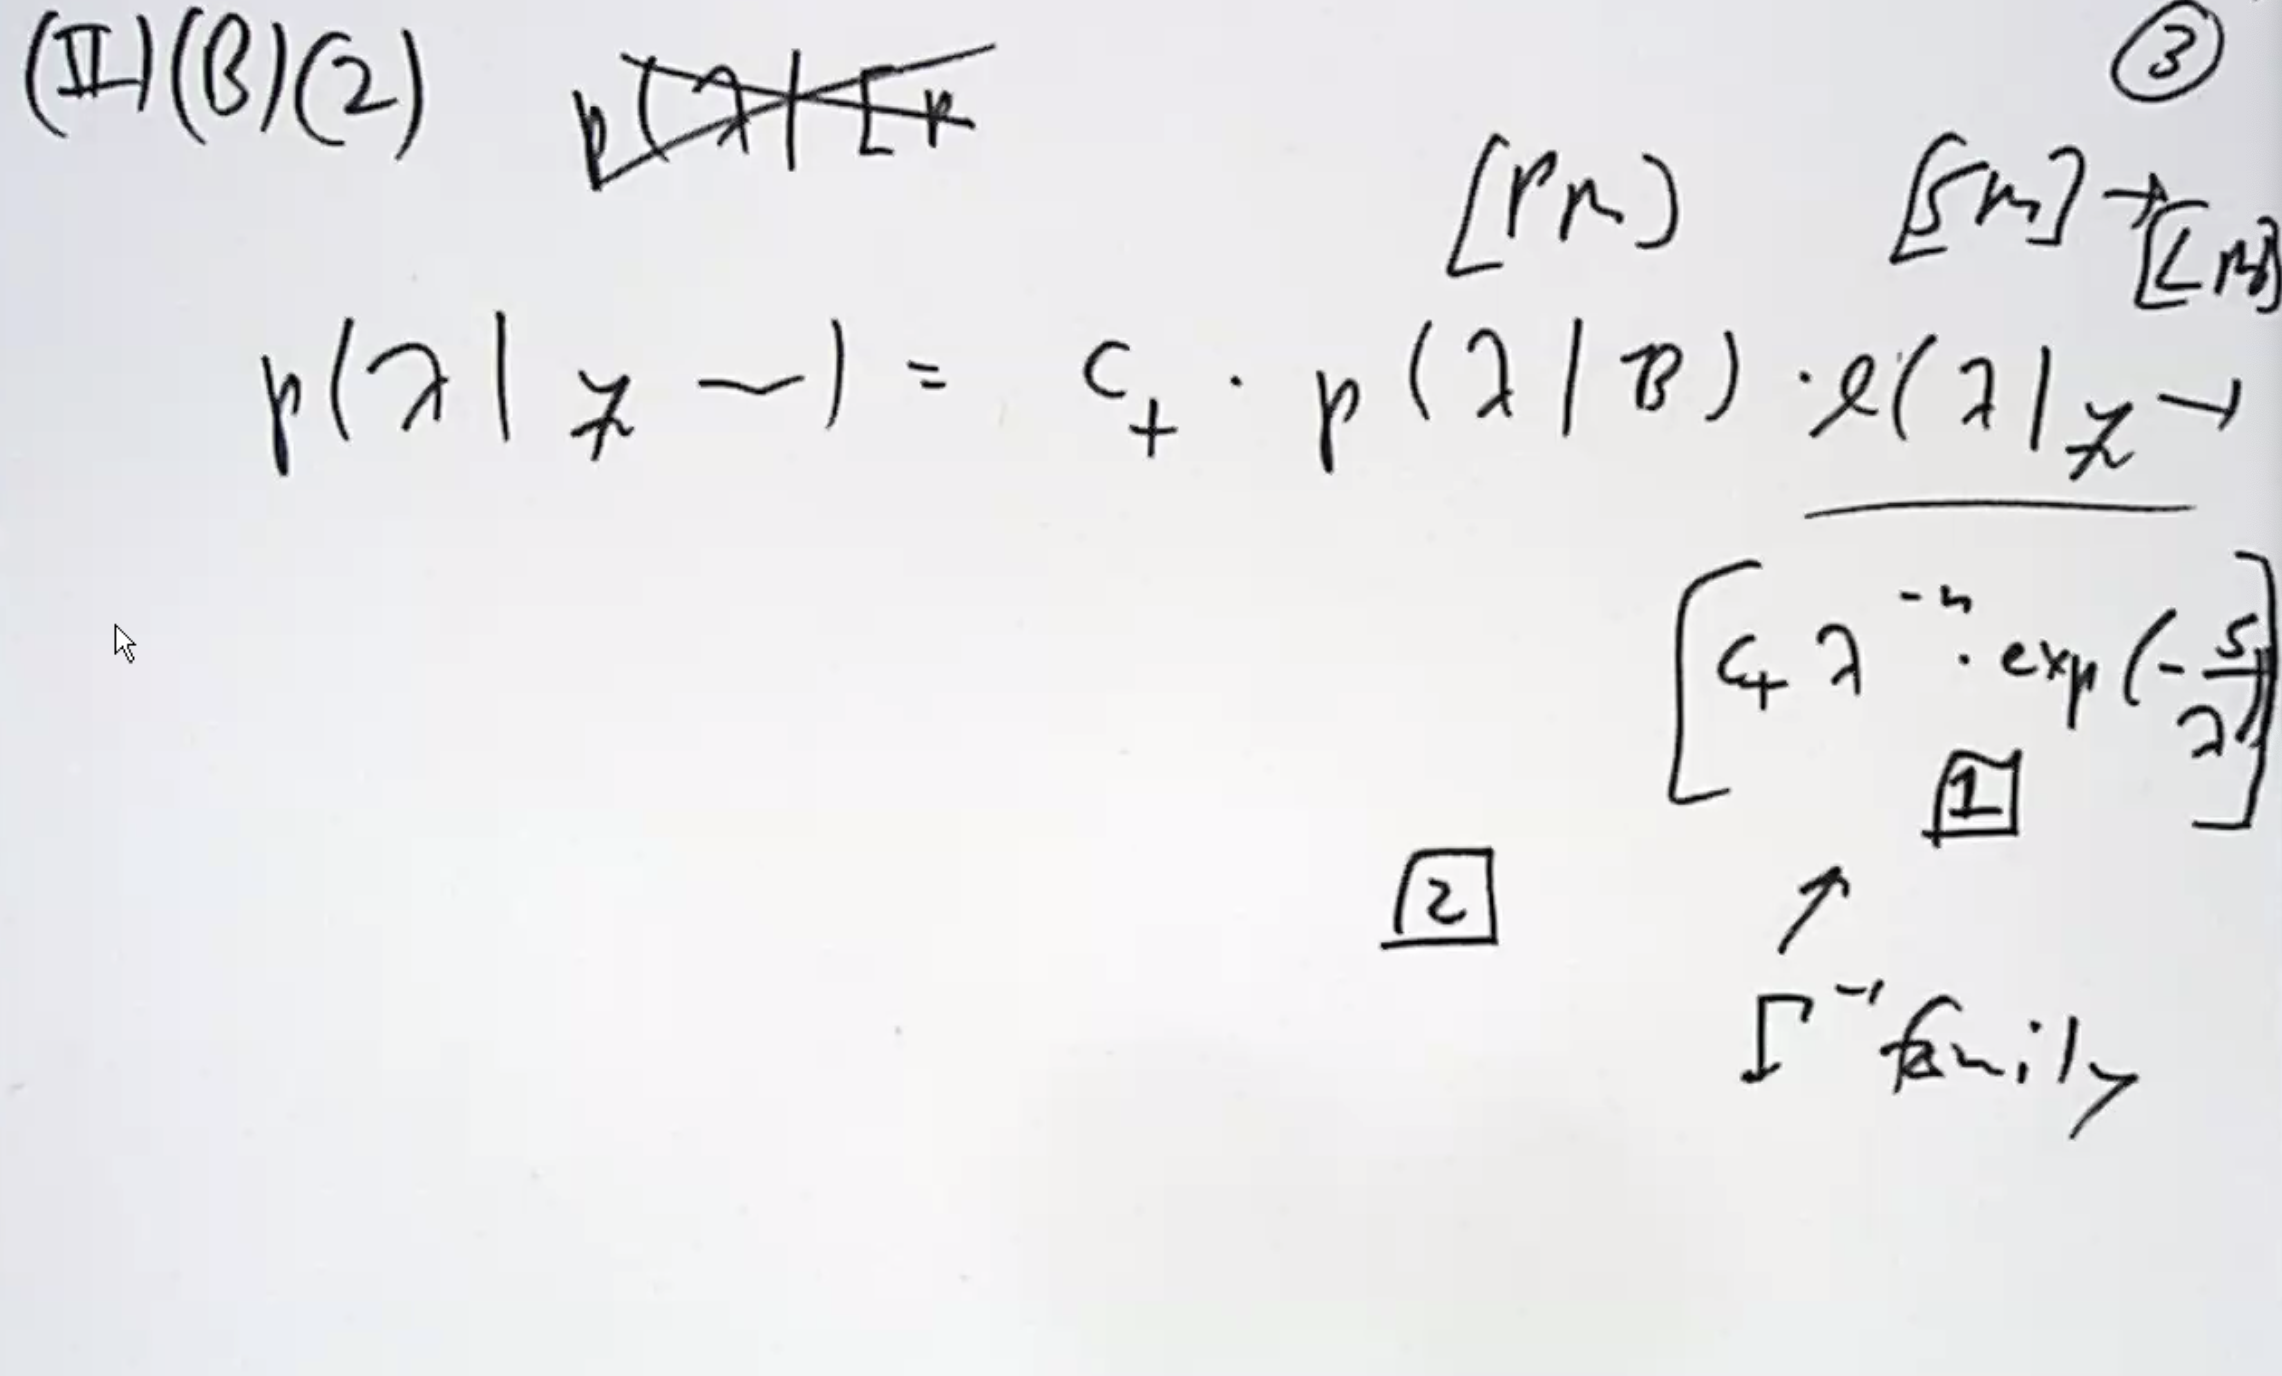 (II)(B)(2) p(λ | [P ③
[PM] [SM] → [LM]
p(λ | y ~) = c₊ · p(λ | B) · ℓ(λ | y ~)
[c₊ λ⁻ⁿ · exp(-s/λ)]
1
2
Γ⁻¹ family